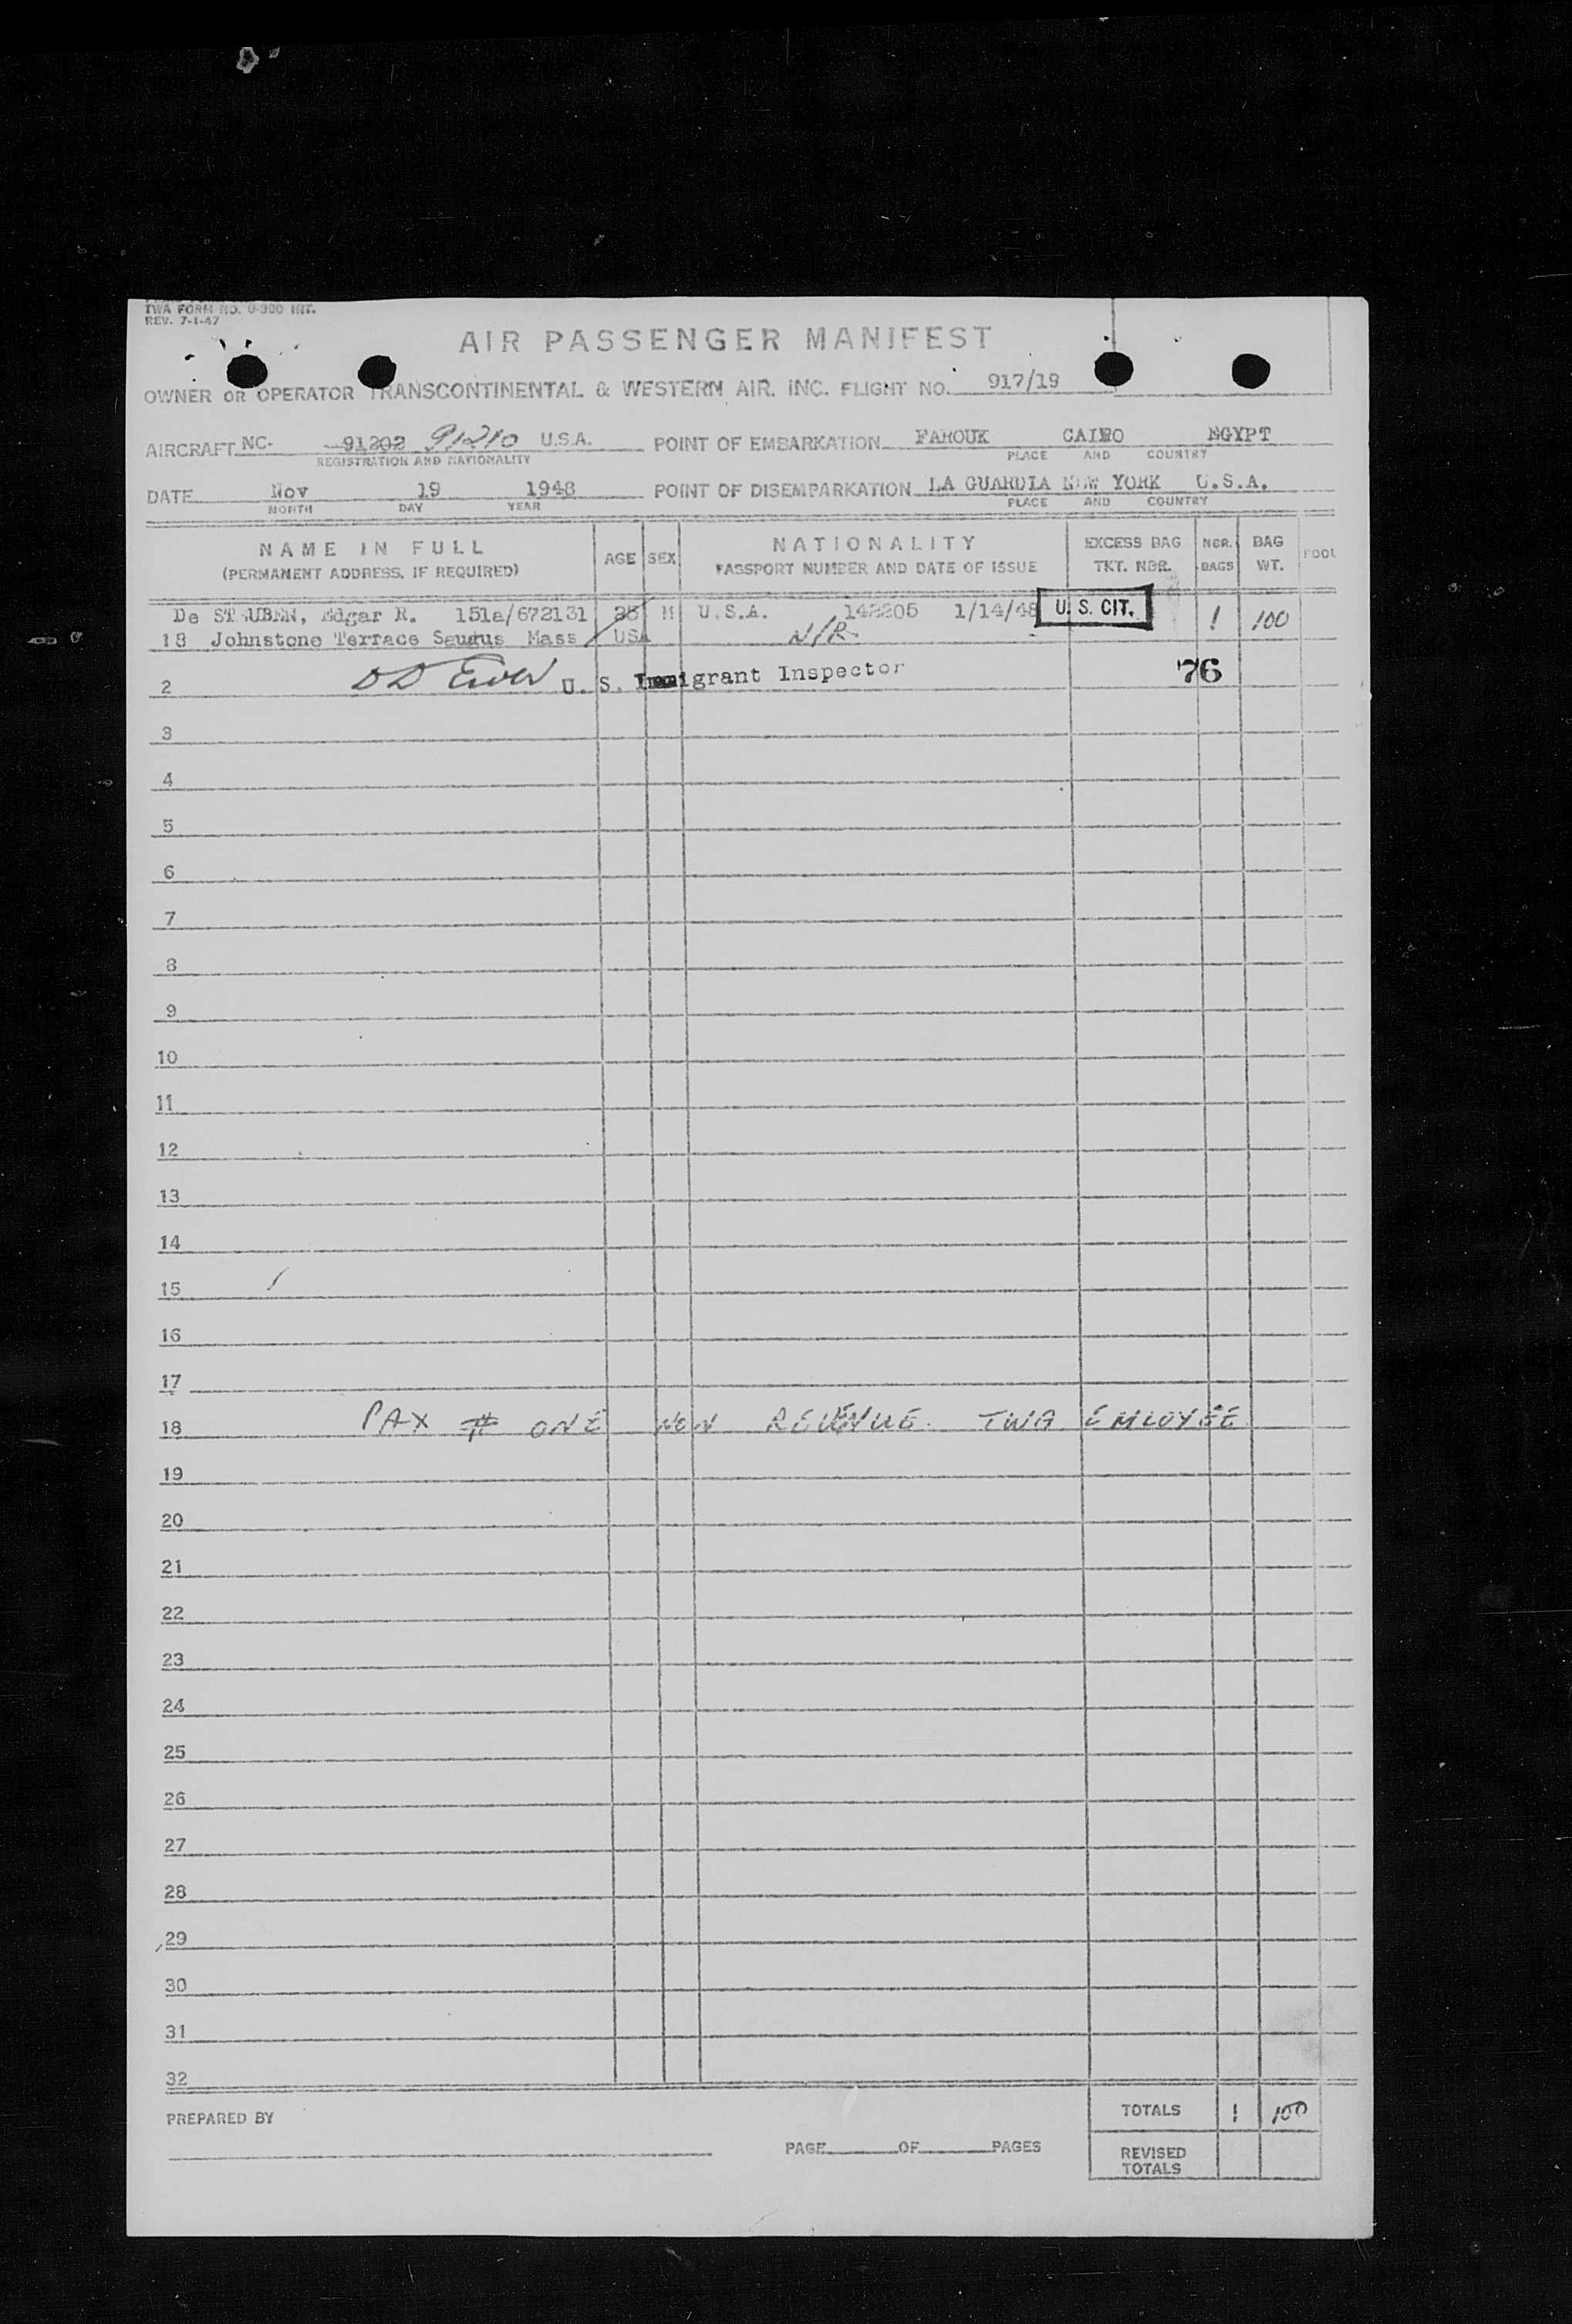 TWA FORM NO. O-900 INT.
REV. 7-1-47
AIR PASSENGER MANIFEST
OWNER OR OPERATOR TRANSCONTINENTAL & WESTERN AIR. INC. FLIGHT NO. 917/19
AIRCRAFT NC- 91202 91210 U.S.A. POINT OF EMBARKATION FAROUK CAIRO EGYPT
REGISTRATION AND NATIONALITY PLACE AND COUNTRY
DATE Nov 19 1948 POINT OF DISEMPARKATION LA GUARDIA NEW YORK U.S.A.
MONTH DAY YEAR PLACE AND COUNTRY
NAME IN FULL (PERMANENT ADDRESS, IF REQUIRED) AGE SEX NATIONALITY PASSPORT NUMBER AND DATE OF ISSUE EXCESS BAG TKT. NBR. NBR. BAGS BAG WT.
De STEUBEN, Edgar R. 151a/672131 35 M U.S.A. 142205 1/14/48 U. S. CIT. 1 100
18 Johnstone Terrace Saugus Mass USA N/R
2 U. S. Immigrant Inspector 76
3
4
5
6
7
8
9
10
11
12
13
14
15
16
17
18 PAX # ONE NON REVENUE. TWA EMLOYEE
19
20
21
22
23
24
25
26
27
28
29
30
31
32
PREPARED BY TOTALS 1 100
PAGE OF PAGES REVISED TOTALS